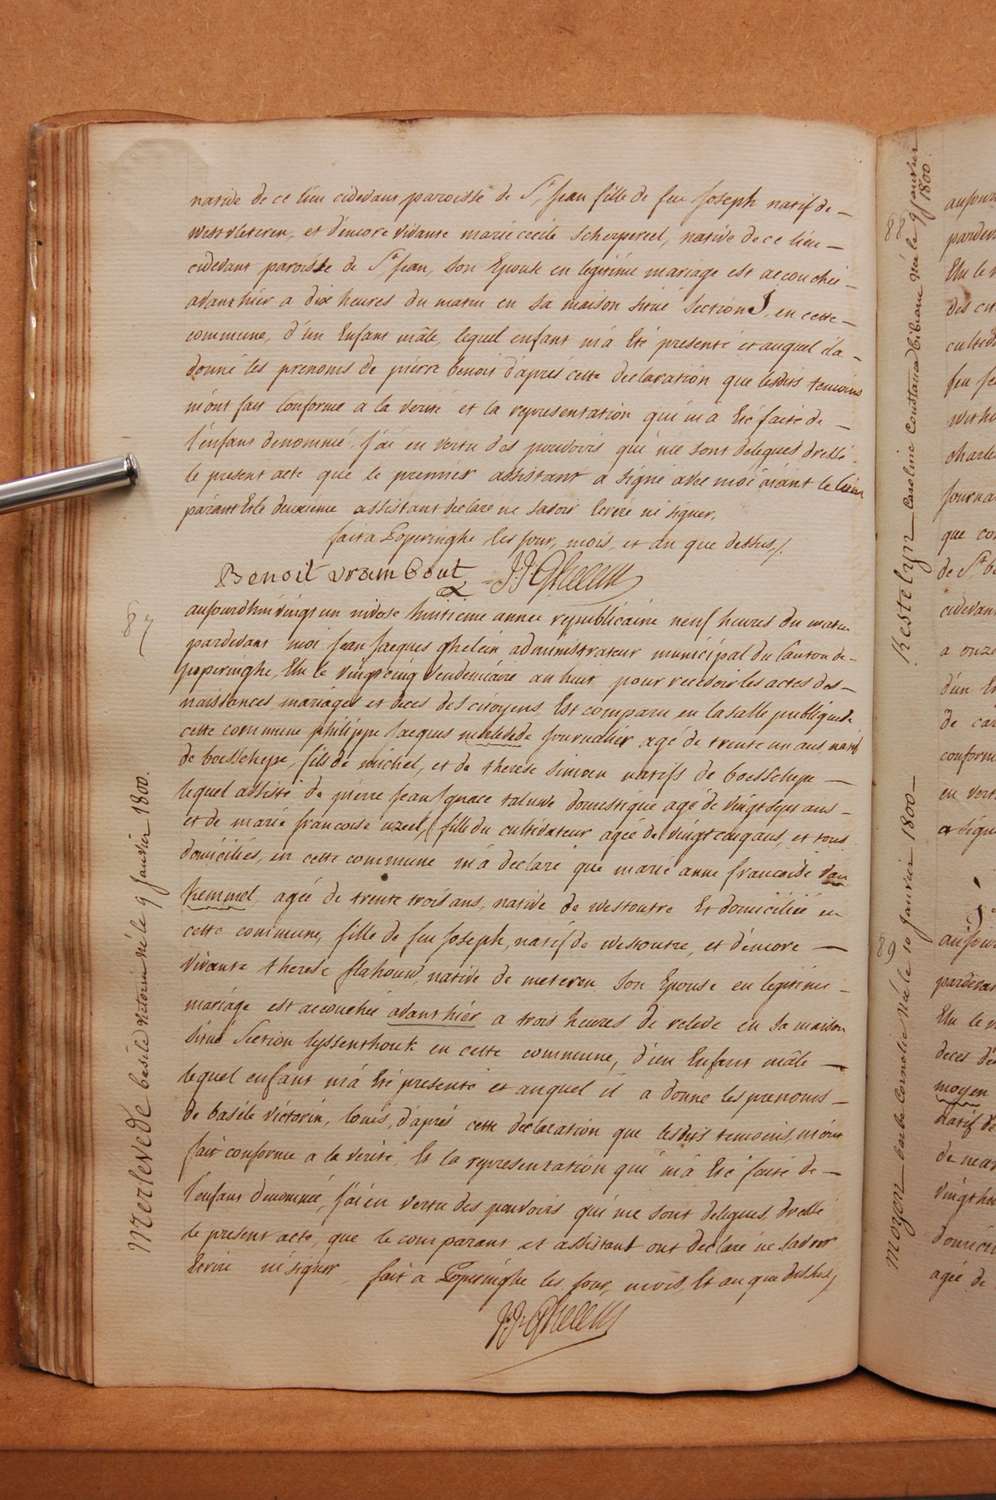 native de ce lieu cidevant paroisse de St Jean fille de feu Joseph natif de
westvleteren, et d'encore vivante marie cecile Scherpereel, native de ce lieu
cidevant paroisse de St Jean, son Epouse en legitime mariage est accouchée
avant hier a dix heures du matin en sa maison situé section J, en cette
commune, d'un Enfant mâle, lequel enfant m'a été presenté et auquel il a
donné les prenoms de pierre benoit d'apres cette declaration que lesdits temoins
m'ont fait conforme a la verité et la representation qui m'a été faite de
l'enfant denommé, j'ai en vertu des pouvoirs qui me sont delegués dressé
le present acte que le premier assistant a signé avec moi aiant le
parant et le deuxieme assistant declaré ne savoir écrire ni signer,
fait a Poperinghe les jour, mois, et an que dessus/.
Benoit vrambout J:J:Ghelein
87
aujourdhui vingt un nivose huitieme année republicaine neuf heures du matin
pardevant moi Jean Jacques ghelein administrateur municipal du Canton de
poperinghe, Elu le vingt cinq vendemiaire an huit pour recevoir les actes des
naissances mariages et deces des citoyens Est comparu en la salle publique de
cette commune philippe Jacques merlevede journalier agé de trente un ans natif
de boesschepe, fils de michel, et de therese Simoen natifs de boesschepe
lequel assisté de pierre Jean Ignace talewe domestique agé de vingt sept ans
et de marie francoise uzeel, fille du cultivateur agée de vingt cinq ans, et tous
domiciliés, en cette commune m'a declaré que marie anne francoise van
hemmel, agée de trente trois ans, native de westoutre Et domiciliée en
cette commune, fille de feu Joseph, natif de westoutre, et d'encore
vivante therese flahouw, native de meteren son Epouse en legitime
mariage est accouchée avant hier a trois heures de relevé en sa maison
situé Section lyssenthouk en cette commune, d'un Enfant mâle
lequel enfant m'a été presenté et auquel il a donné les prenoms
de basile victorin, louis, d'apres cette declaration que lesdits temoins m'ont
fait conforme a la verité, Et la representation qui m'a été faite de
l'enfant denommé, j'ai en vertu des pouvoirs qui me sont delegués, dressé
le present acte, que le comparant et assistant ont declaré ne savoir
écrire ni signer, fait a Poperinghe les jour, mois, Et an que dessus/.
J:J:Ghelein
Merlevede basile victorin né le 9 Janvier 1800.
88
Kestelyn Caroline constance bibiane née le 9 janvier 1800.
89
Moyon barbe Cornelie née le 10 Janvier 1800
pardevan
Elu le
des cit
feu
charle
journa
que co
de St
cidevant
a onze
d'un E
de ca
conform
en vert
a signé
aujour
pardevan
Elu le
deces de
moyen
natif de
vingt hu
domici
agée de